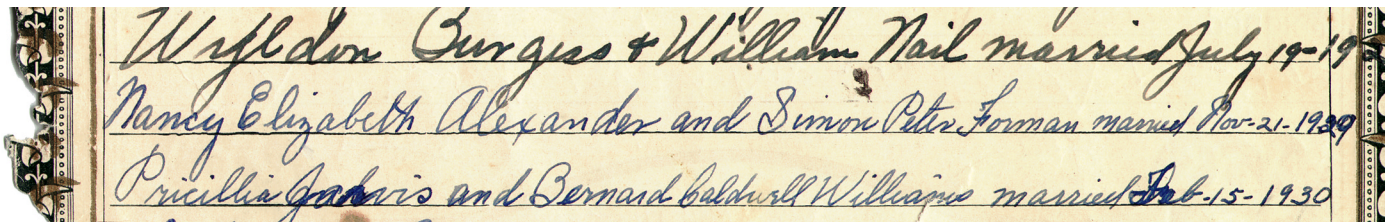 Wyldon Burgess & William Nail married July 19-19
Nancy Elizabeth Alexander and Simon Peter Forman married Nov-21-1929
Pricillia Jarvis and Bernard Caldwell Williams married Feb-15-1930